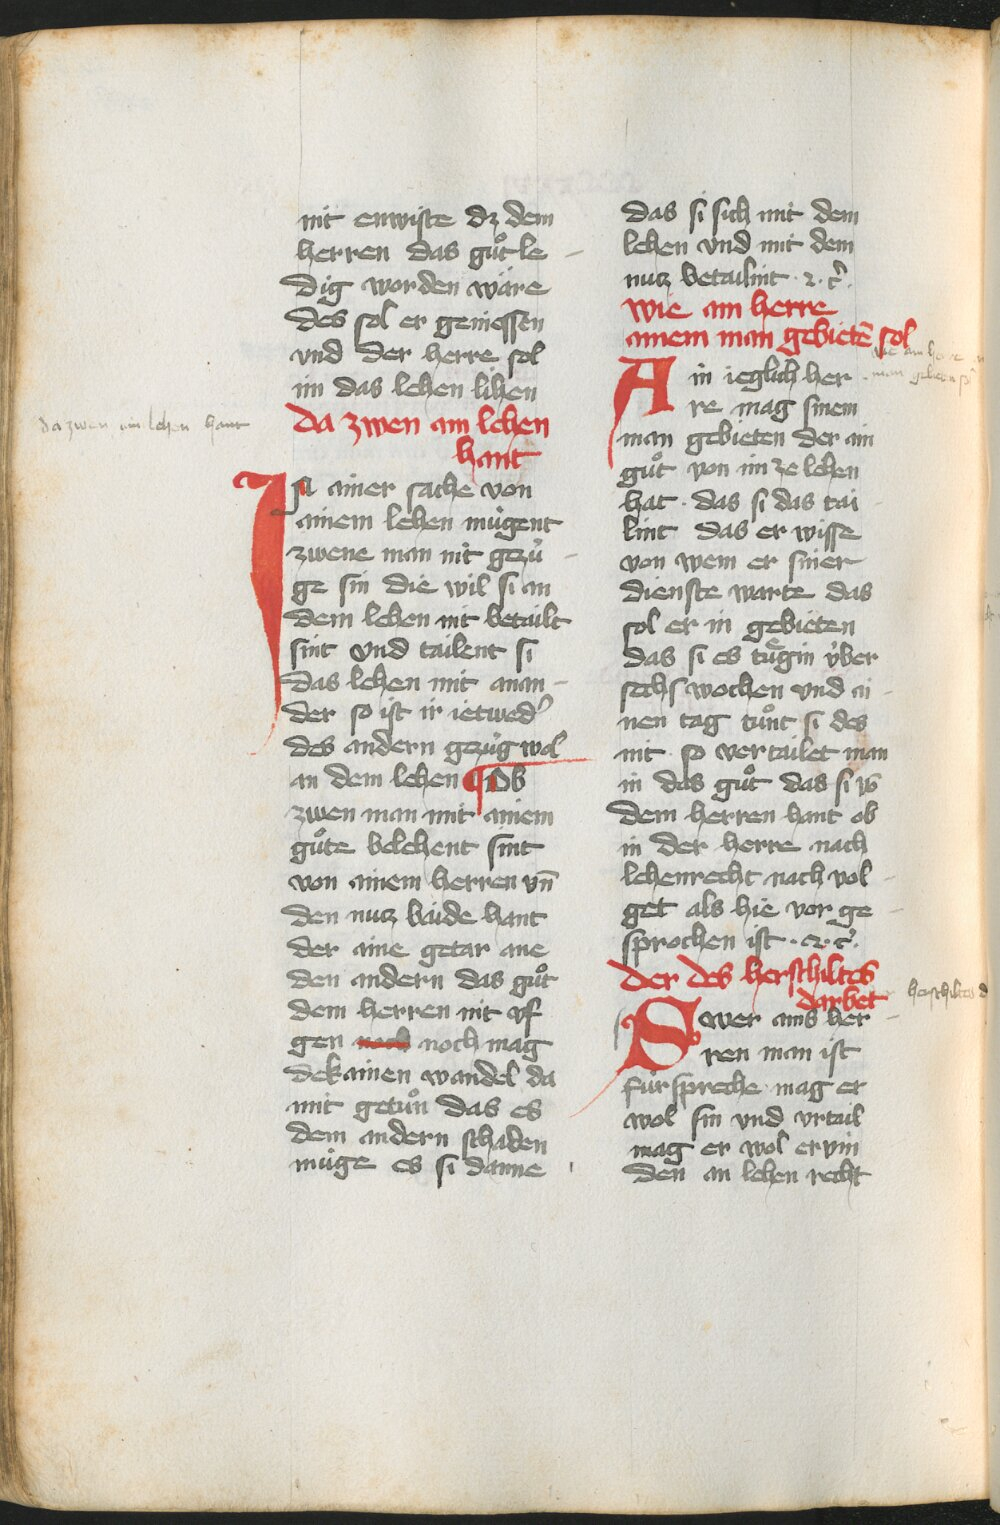 nit enwiste dz dem
herren das guͦt le-
dig worden wäre
des sol er geniessen
vnd der herre sol
im das lehen lihen
da zwen ain lehen
hant
da zwen ain lehen hant
In ainer sache von
ainem lehen mu̇gent
zwene man nit gezu̇-
ge sin die wil si an
dem lehen nit betailt
sint vnd tailent si
das lehen mit anan-
der so ist ir ietwedˀ
des andern gezu̇g wol
an dem lehen ¶ Ob
zwen man mit ainem
guͦte belehent sint
von ainem herren vn̄
den nucz baide hant
der aine getar ane
den andern das guͦt
dem herren nit vf
gen noch noch mag
dekainen wandel da
mit getuͦn das es
dem andern schaden
mu̇ge es si danne
das si sich mit dem
lehen vnd mit dem
nucz betailnt · ꝛ · cˀ·
wie ain herre
ainem man gebietē sol
Ain ieglich her-
re mag sinem
man gebieten der ain
guͦt von im ze lehen
hat · das si das tai-
lint das er wisse
von wem er siner
dienste warte das
sol er in gebieten
das si es tuͤgin vͥber
sechs wochen vnd ai-
nen tag tuͦnt si des
nit so vertailet man
in das guͦt das si vō
dem herren hant ob
in der herre nach
lehenrecht nach vol-
get als hie vor ge-
sprochen ist · ꝛ · cˀ·
Der des herschiltes
darbet
Swer ains her-
ren man ist
fu̇rspreche mag er
wol sin vnd vrtail
mag er wol ervin
den an lehen recht